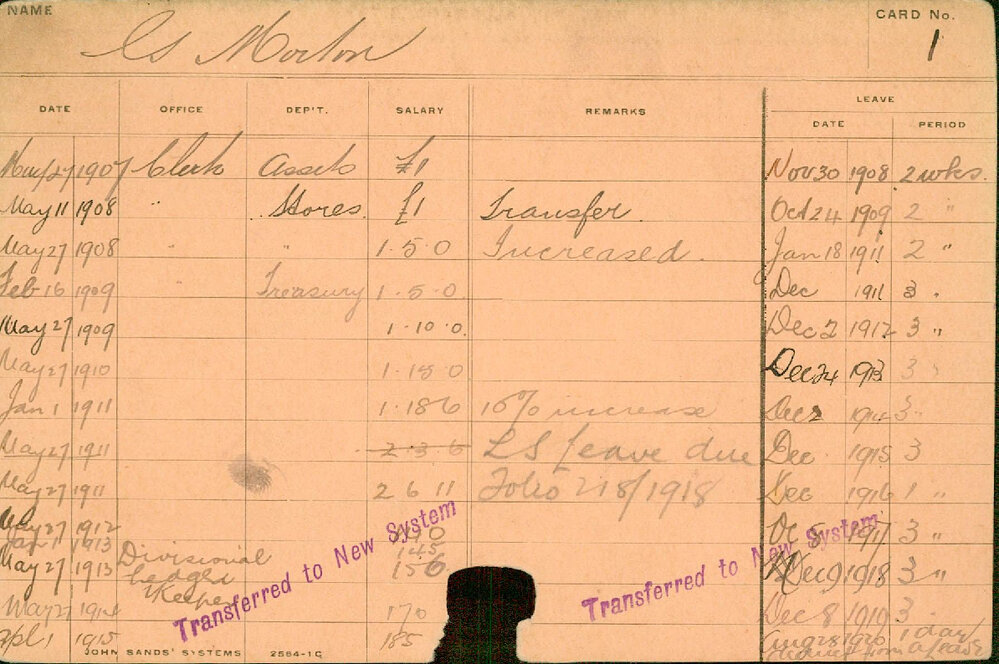 NAME
CARD No.
Morton
1
LEAVE
DATE OFFICE DEP'T. SALARY REMARKS DATE PERIOD
May 27 1907 Clerk Assets £1 Nov 30 1908 2 wks.
May 11 1908 " Stores. £1 Transfer. Oct 24 1909 2 "
May 27 1908 " " 1.5.0 Increased. Jan 18 1911 2 "
Feb 16 1909 Treasury 1.5.0. Dec 1911 3 "
May 27 1909 1.10.0. Dec 2 1912 3 "
May 27 1910 1.15.0 Dec 24 1913 3 "
Jan 1 1911 1.18.6 10% increase Dec 2 1914 3 "
May 27 1911 2.3.6 LS leave due Dec 1915 3
May 27 1911 2 6 11 Folio 218/1918 Dec 1916 1 "
May 27 1912 Oc 8 1917 3 "
Jan 1 1913 145
May 27 1913 Divisional Ledger Keeper 156 Dec 9 1918 3 "
May 27 1914 170 Dec 8 1919 3
Apl 1 1915 185 Aug 28 1920 1 day
Transferred to New System
Transferred to New System
JOHN SANDS' SYSTEMS 2564-1C